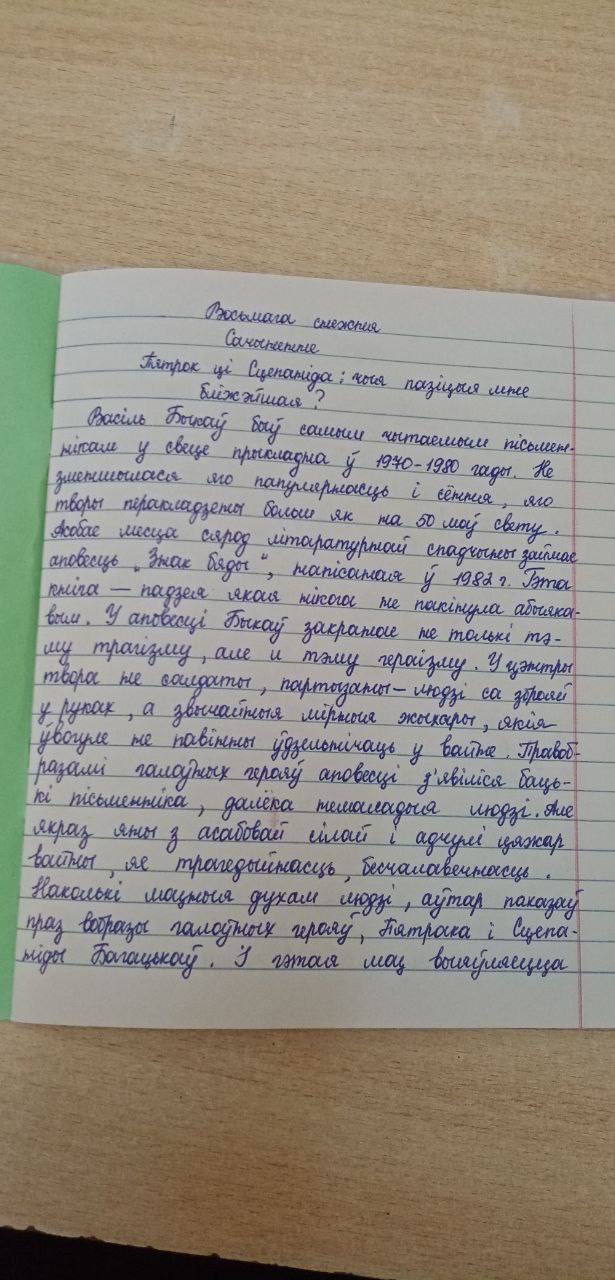 Восьмага снежня
Сачыненне
Пятрок ці Сцепаніда: чыя пазіцыя мне
бліжэйшая?
Васіль Быкаў быў самым чытаемым пісьмен-
нікам у свеце прыкладна ў 1970-1980 гады. Не
зменшылася яго папулярнасць і сёння, яго
творы перакладзены больш як на 50 моў свету.
Асобае месца сярод літаратурнай спадчыны займае
аповесць „Знак бяды", напісаная ў 1982 г. Гэта
кніга — падзея якая нікога не пакінула абыяка-
вым. У аповесці Быкаў закранае не толькі тэ-
му трагізму, але и тэму гераізму. У цэнтры
твора не салдаты, партызаны — людзі са зброяй
у руках, а звычайныя мірныя жыхары, якія
ўвогуле не павінны ўдзельнічаць у вайне. Правоб-
разамі галоўных герояў аповесці з'явіліся баць-
кі пісьменніка, далёка немаладыя людзі. Але
якраз яны з асабовай сілай і адчулі цяжар
вайны, яе трагедыйнасць, бесчалавечнасць.
Наколькі моцныя духам людзі, аўтар паказаў
праз вобразы галоўных герояў, Пятрака і Сцепа-
ніды Багацькаў. І гэтая моц выяўляецца